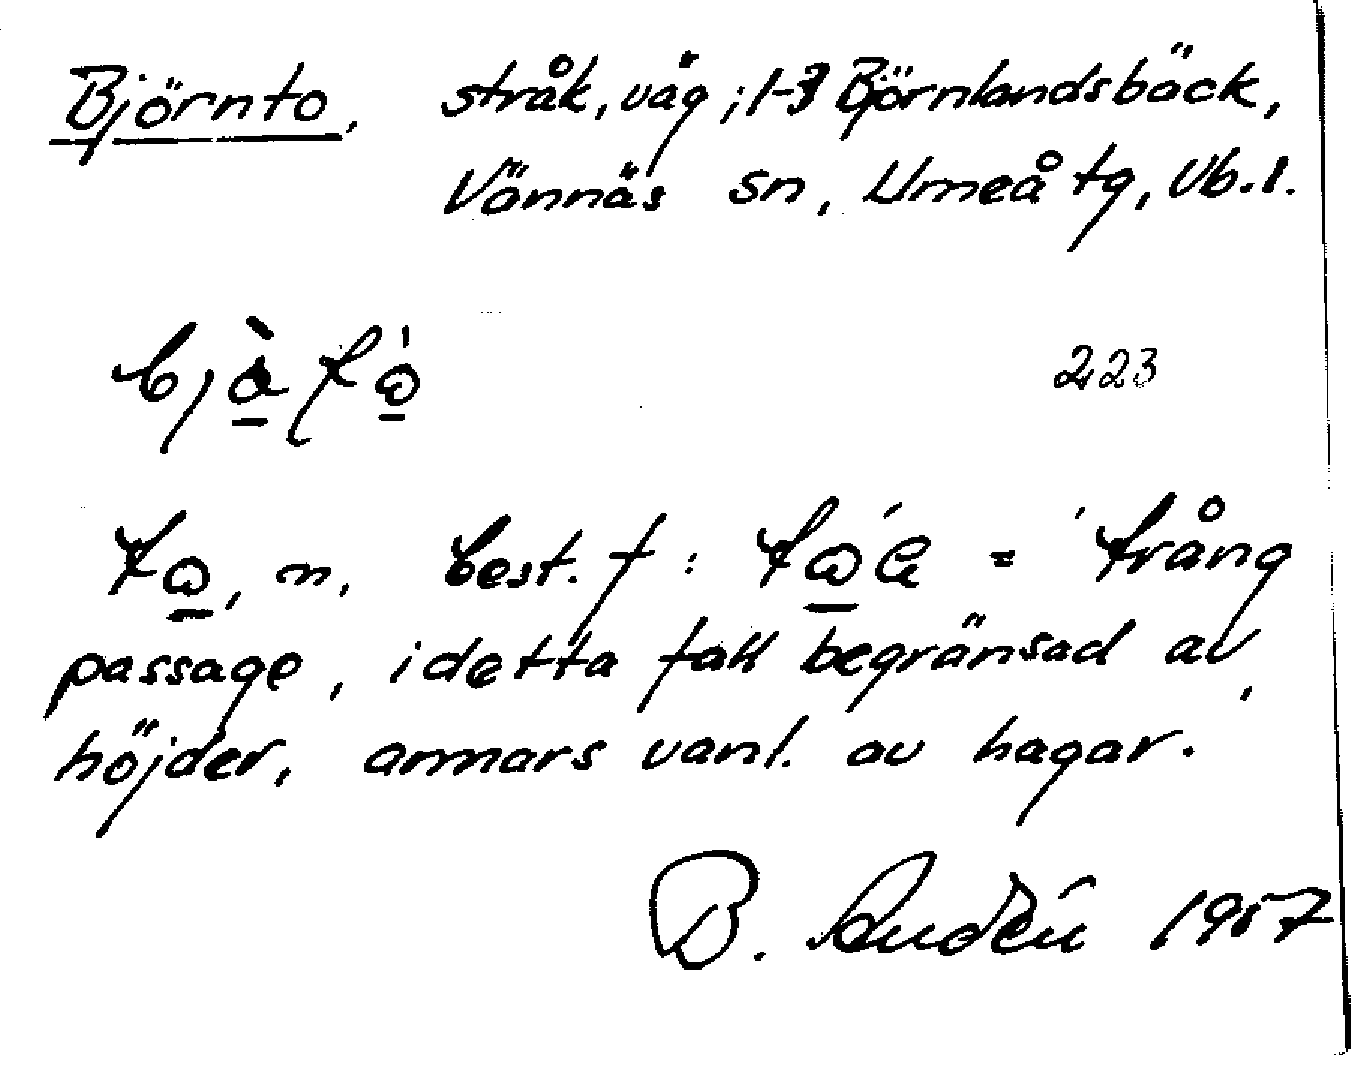 Björnto, stråk, väg; 1-3 Björnlandsbäck,
Vännäs sn, Umeå tg, Vb. l.
223
n. best. f: = trång
passage, i detta fall begränsad av
höjder, annars vanl. av hagar.
B. 1957